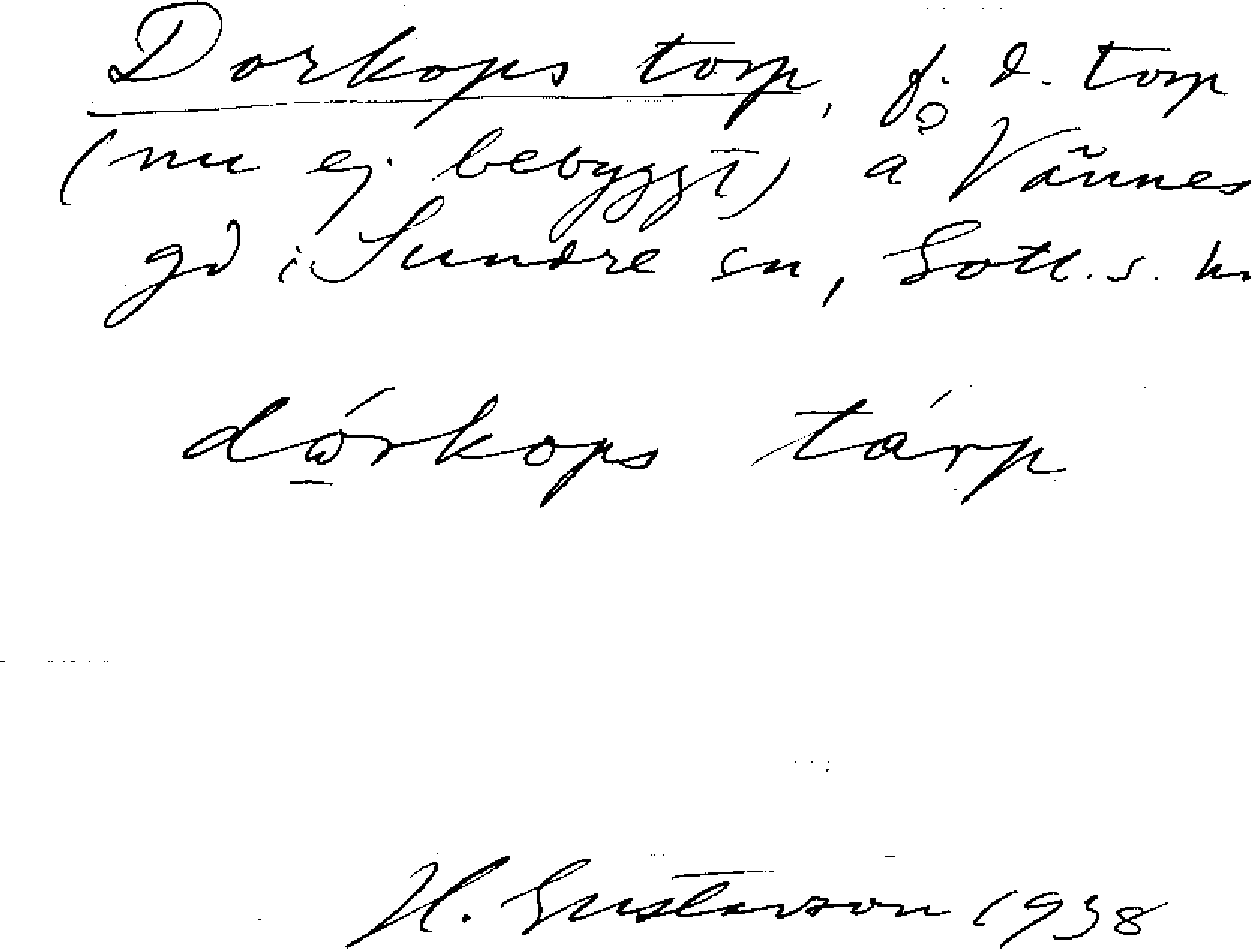 Dorkops torp, f. d. torp
(nu ej bebyggt) å Vännes
gd i Sundre sn, Gotl. s. hd
dórkops tárp
H. Gustavson 1938